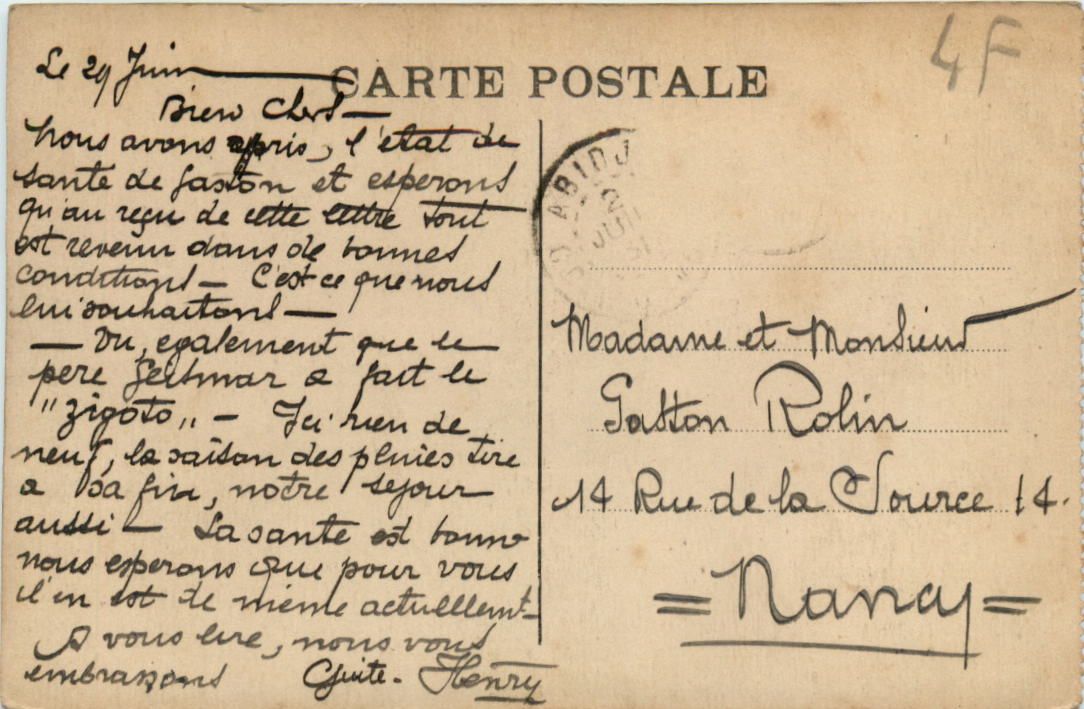 4F
CARTE POSTALE
Le 29 Juin
Bien Chers —
Nous avons appris, l'état de
santé de Gaston et esperons
qu'au reçu de cette lettre tout
est revenu dans de bonnes
conditions — C'est ce que nous
lui souhaitons —
— Vu, egalement que le
pere a fait le
"Zigoto" — Ici rien de
neuf, la saison des pluies tire
a sa fin, notre sejour
aussi — La santé est bonne
nous esperons que pour vous
il en est de même actuellemt —
A vous lire, nous vous
embrassons Guite. Henry
ABIDJ
2
JUI
31
Madame et Monsieur
Gaston Robin
14 Rue de la Source 14.
= Nancy =